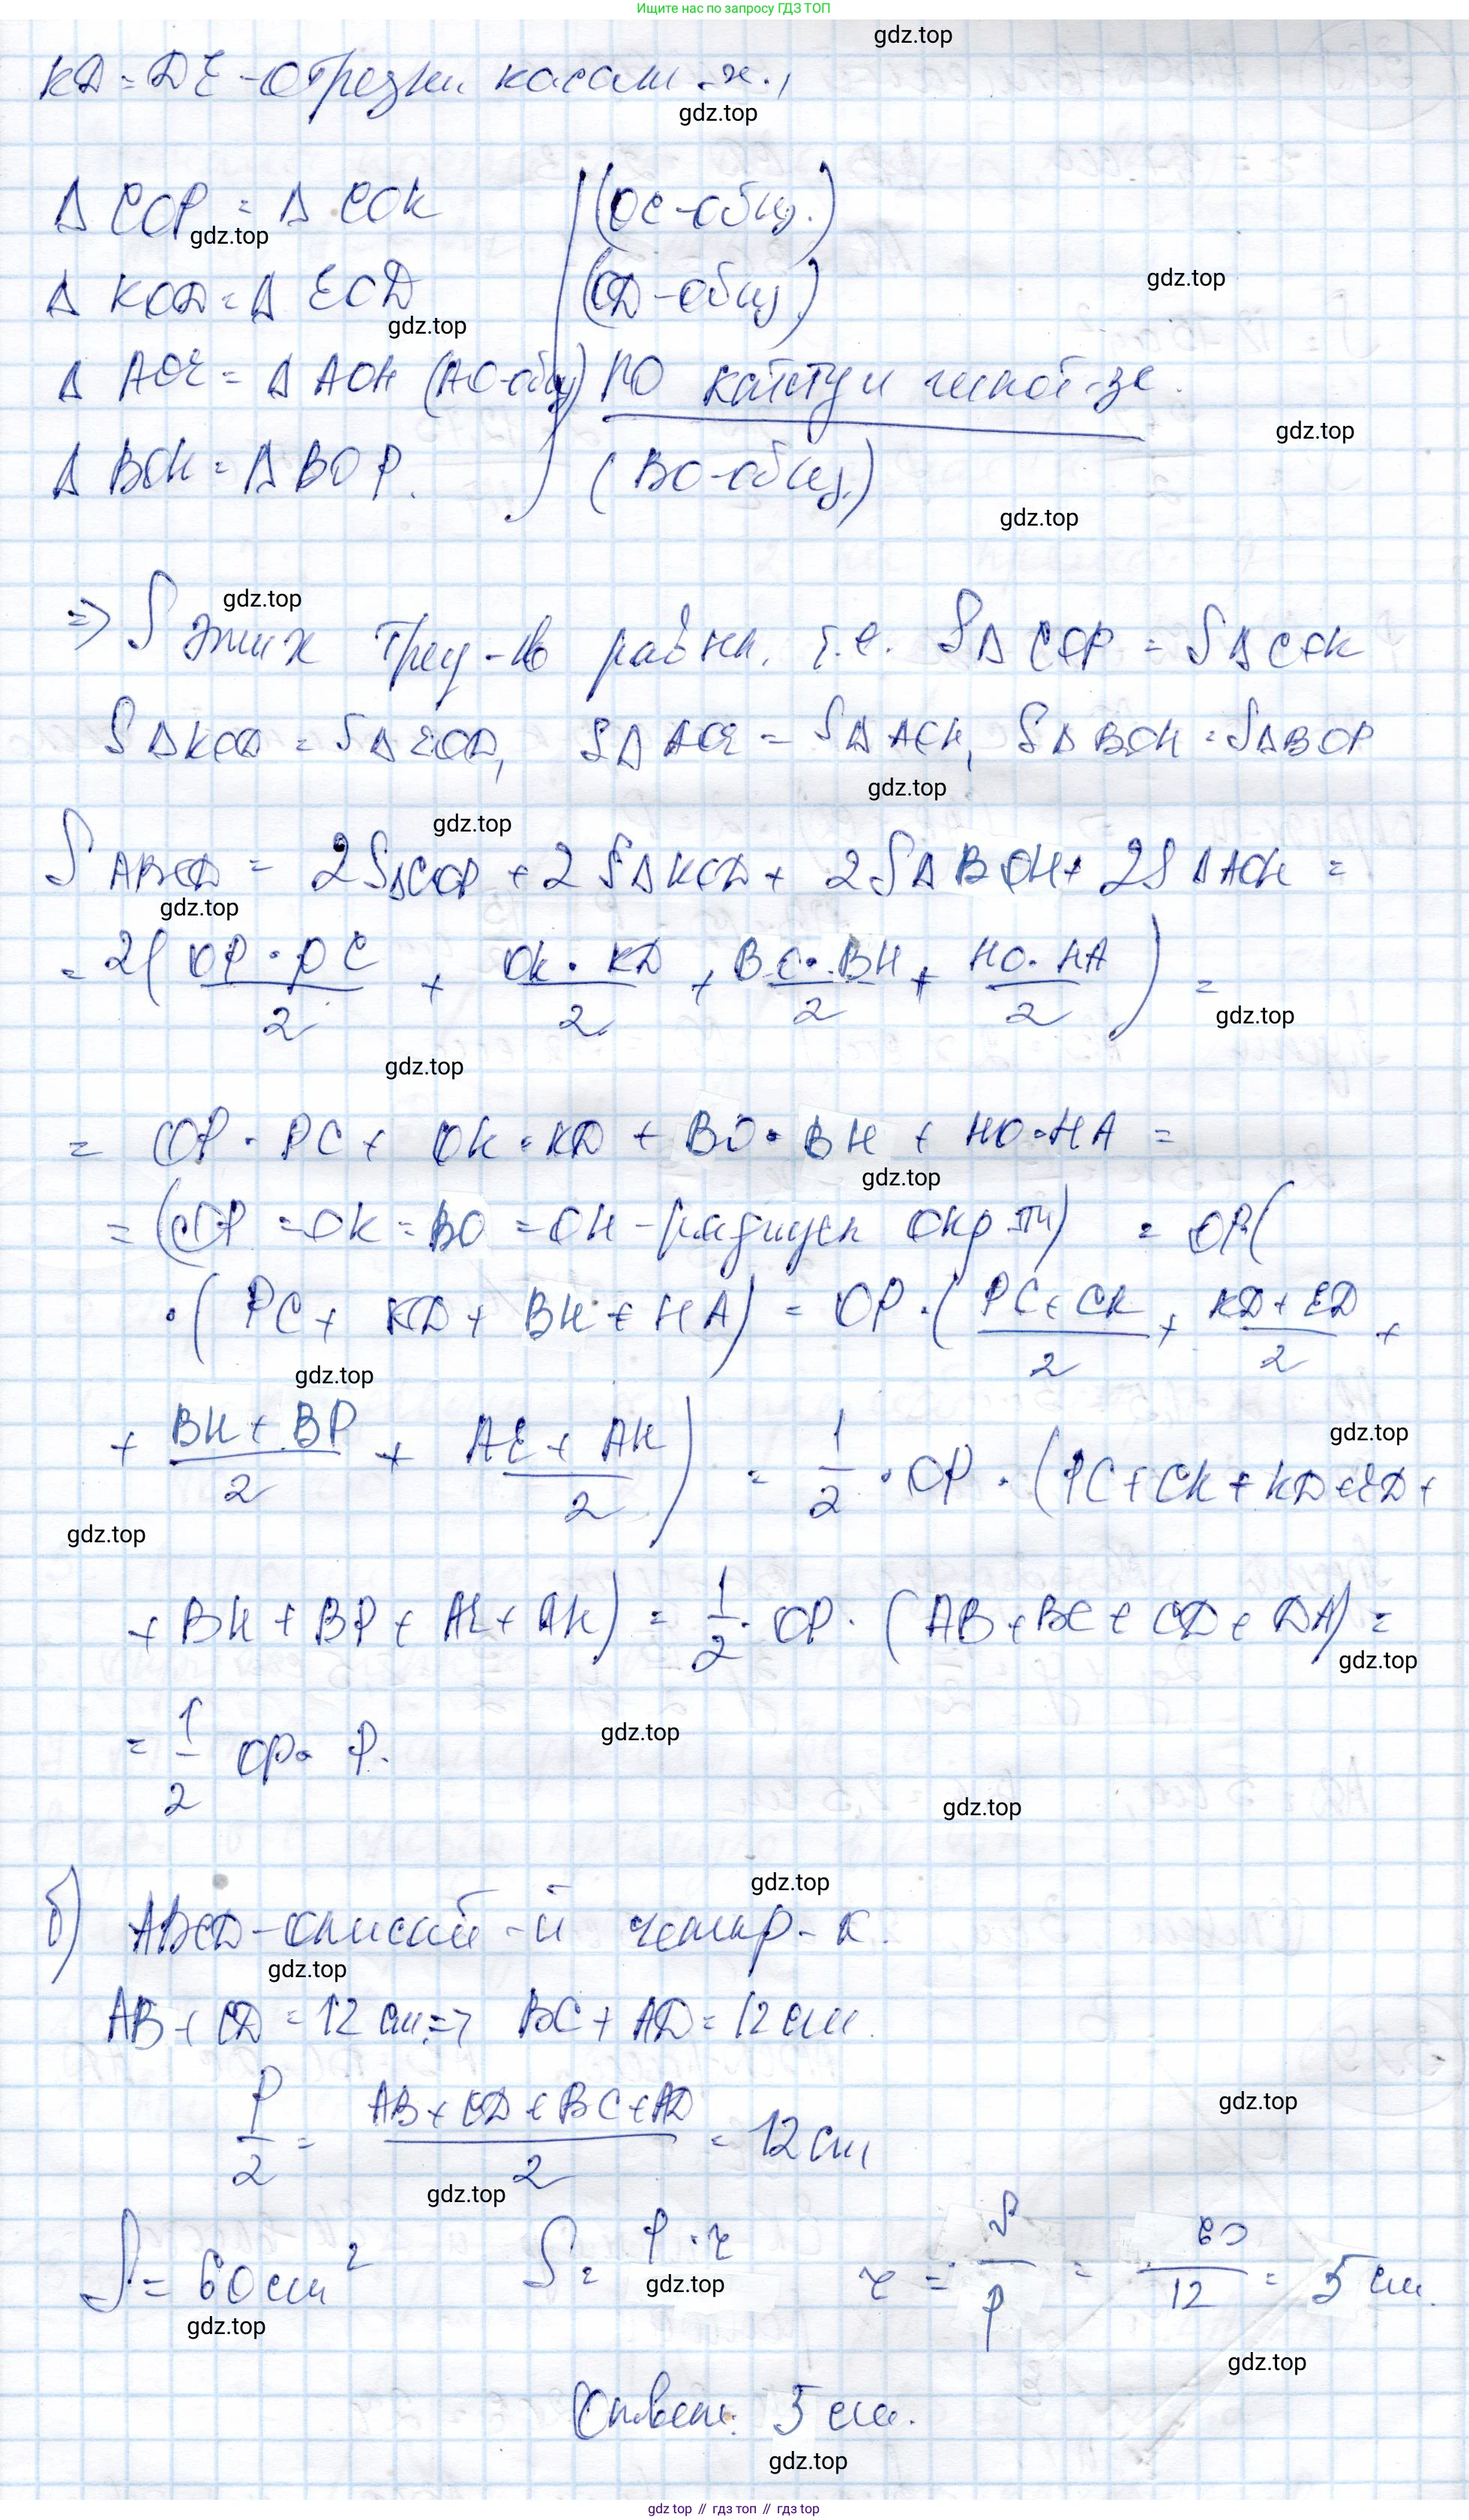 Ищите нас по запросу ГДЗ ТОП
gdz.top
KD = DE - отрезки касат-х.,
gdz.top
Δ COP = Δ COK (OC-общ.)
gdz.top
Δ KOD = Δ EOD (OD-общ)
gdz.top
gdz.top
Δ AOE = Δ AOH (AO-общ) по катету и гипот-зе.
gdz.top
Δ BOH = Δ BOP. (BO-общ.)
gdz.top
gdz.top
=> S этих треу-в равны, т.е. SΔCOP = SΔCOK
SΔKOD = SΔEOD, SΔAOE = SΔAOH, SΔBOH = SΔBOP
gdz.top
gdz.top
S ABCD = 2SΔCOP + 2SΔKOD + 2SΔBOH + 2SΔAOH =
gdz.top
= 2( OP · PC / 2 + OK · KD / 2 + BO · BH / 2 + HO · HA / 2 ) =
gdz.top
gdz.top
= OP · PC + OK · KD + BO · BH + HO · HA =
gdz.top
= (OP = OK = BO = OH - радиусы окр-ти) = OP(
· ( PC + KD + BH + HA) = OP · ( PC + CK / 2 + KD + ED / 2 +
gdz.top
+ BH + BP / 2 + AE + AH / 2 ) = 1/2 · OP · (PC + CK + KD + ED +
gdz.top
gdz.top
+ BH + BP + AE + AH) = 1/2 · OP · (AB + BC + CD + DA) =
gdz.top
= 1/2 OP · P.
gdz.top
gdz.top
gdz.top
б) ABCD - описанный четыр-к.
gdz.top
AB + CD = 12 см => BC + AD = 12 см.
P/2 = AB + CD + BC + AD / 2 = 12 см
gdz.top
gdz.top
S = 60 см² S = p · r r = S/p = 60/12 = 5 см.
gdz.top
gdz.top
gdz.top
Ответ: 5 см.
gdz.top
gdz top // гдз топ // гдз top